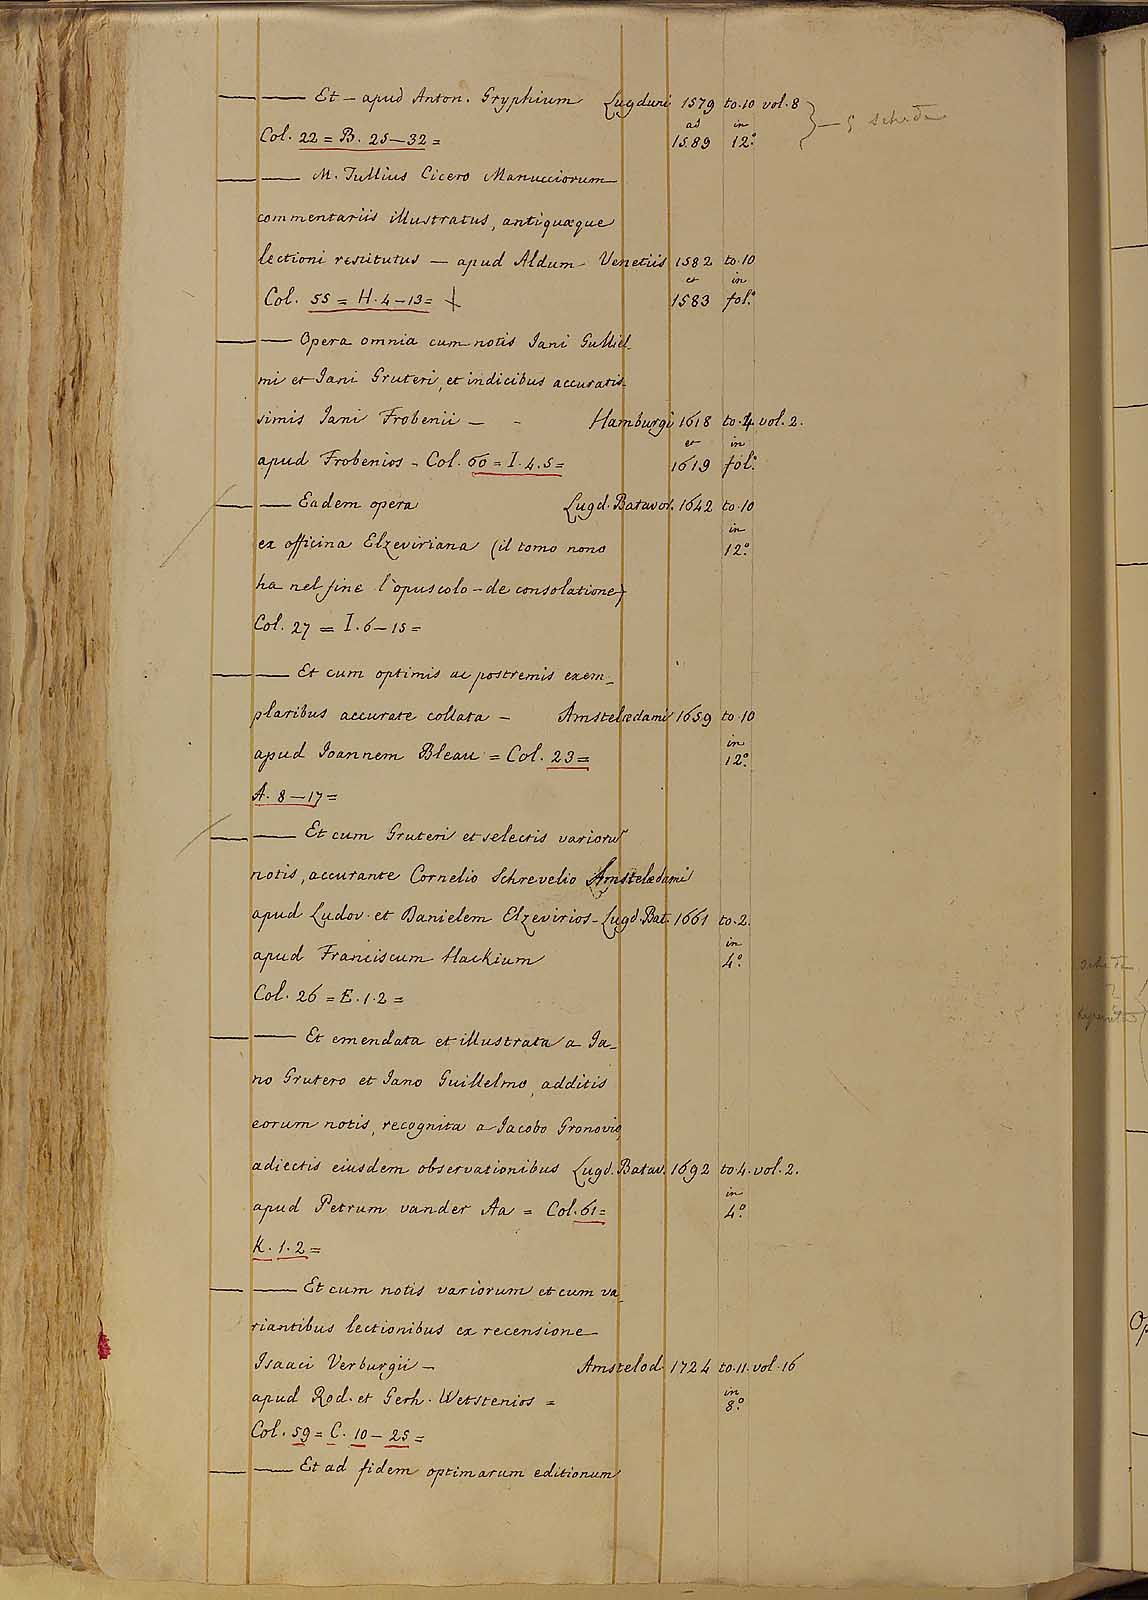 — — Et — apud Anton. Gryphium Lugduni 1579 to. 10 vol. 8
ad in
Col. 22 = B. 25—32 = 1589 12.º
— — M. Tullius Cicero Manucciorum
commentariis illustratus, antiquæque
lectioni restitutus — apud Aldum Venetiis 1582 to. 10
et in
Col. 55 = H. 4—13 = 1583 fol.º
— — Opera omnia cum notis Jani Gulliel-
mi et Jani Gruteri, et indicibus accuratis-
simis Jani Frobenii — - Hamburgi 1618 to. 4. vol. 2.
et in
apud Frobenios - Col. 60 = I. 4. 5 = 1619 fol.º
— — Eadem opera Lugd. Batavor. 1642 to. 10
in
ex officina Elzeviriana (il tomo nono 12.º
ha nel fine l'opuscolo — de consolatione)
Col. 27 = I. 6—15 =
— — Et cum optimis ac postremis exem-
plaribus accurate collata — Amstelædami 1659 to. 10
in
apud Joannem Bleau = Col. 23 = 12.º
A. 8—17 =
— — Et cum Gruteri et selectis varioru͂
notis, accurante Cornelio Schrevelio Amstelædami
apud Ludov. et Danielem Elzevirios - Lugd. Bat. 1661 to. 2.
in
apud Franciscum Hackium 4.º
Col. 26 = E. 1. 2 =
— — Et emendata et illustrata a Ja-
no Grutero et Jano Guillelmo, additis
eorum notis, recognita a Jacobo Gronovio,
adiectis eiusdem observationibus Lugd. Batav. 1692 to. 4. vol. 2.
in
apud Petrum vander Aa = Col. 61 = 4.º
K. 1. 2 =
— — Et cum notis variorum et cum va-
riantibus lectionibus ex recensione
Isaaci Verburgii — Amstelod. 1724 to. 11. vol. 16
in
apud Rod. et Gerh. Wetstenios = 8.º
Col. 59 = C. 10 — 25 =
— — Et ad fidem optimarum editionum